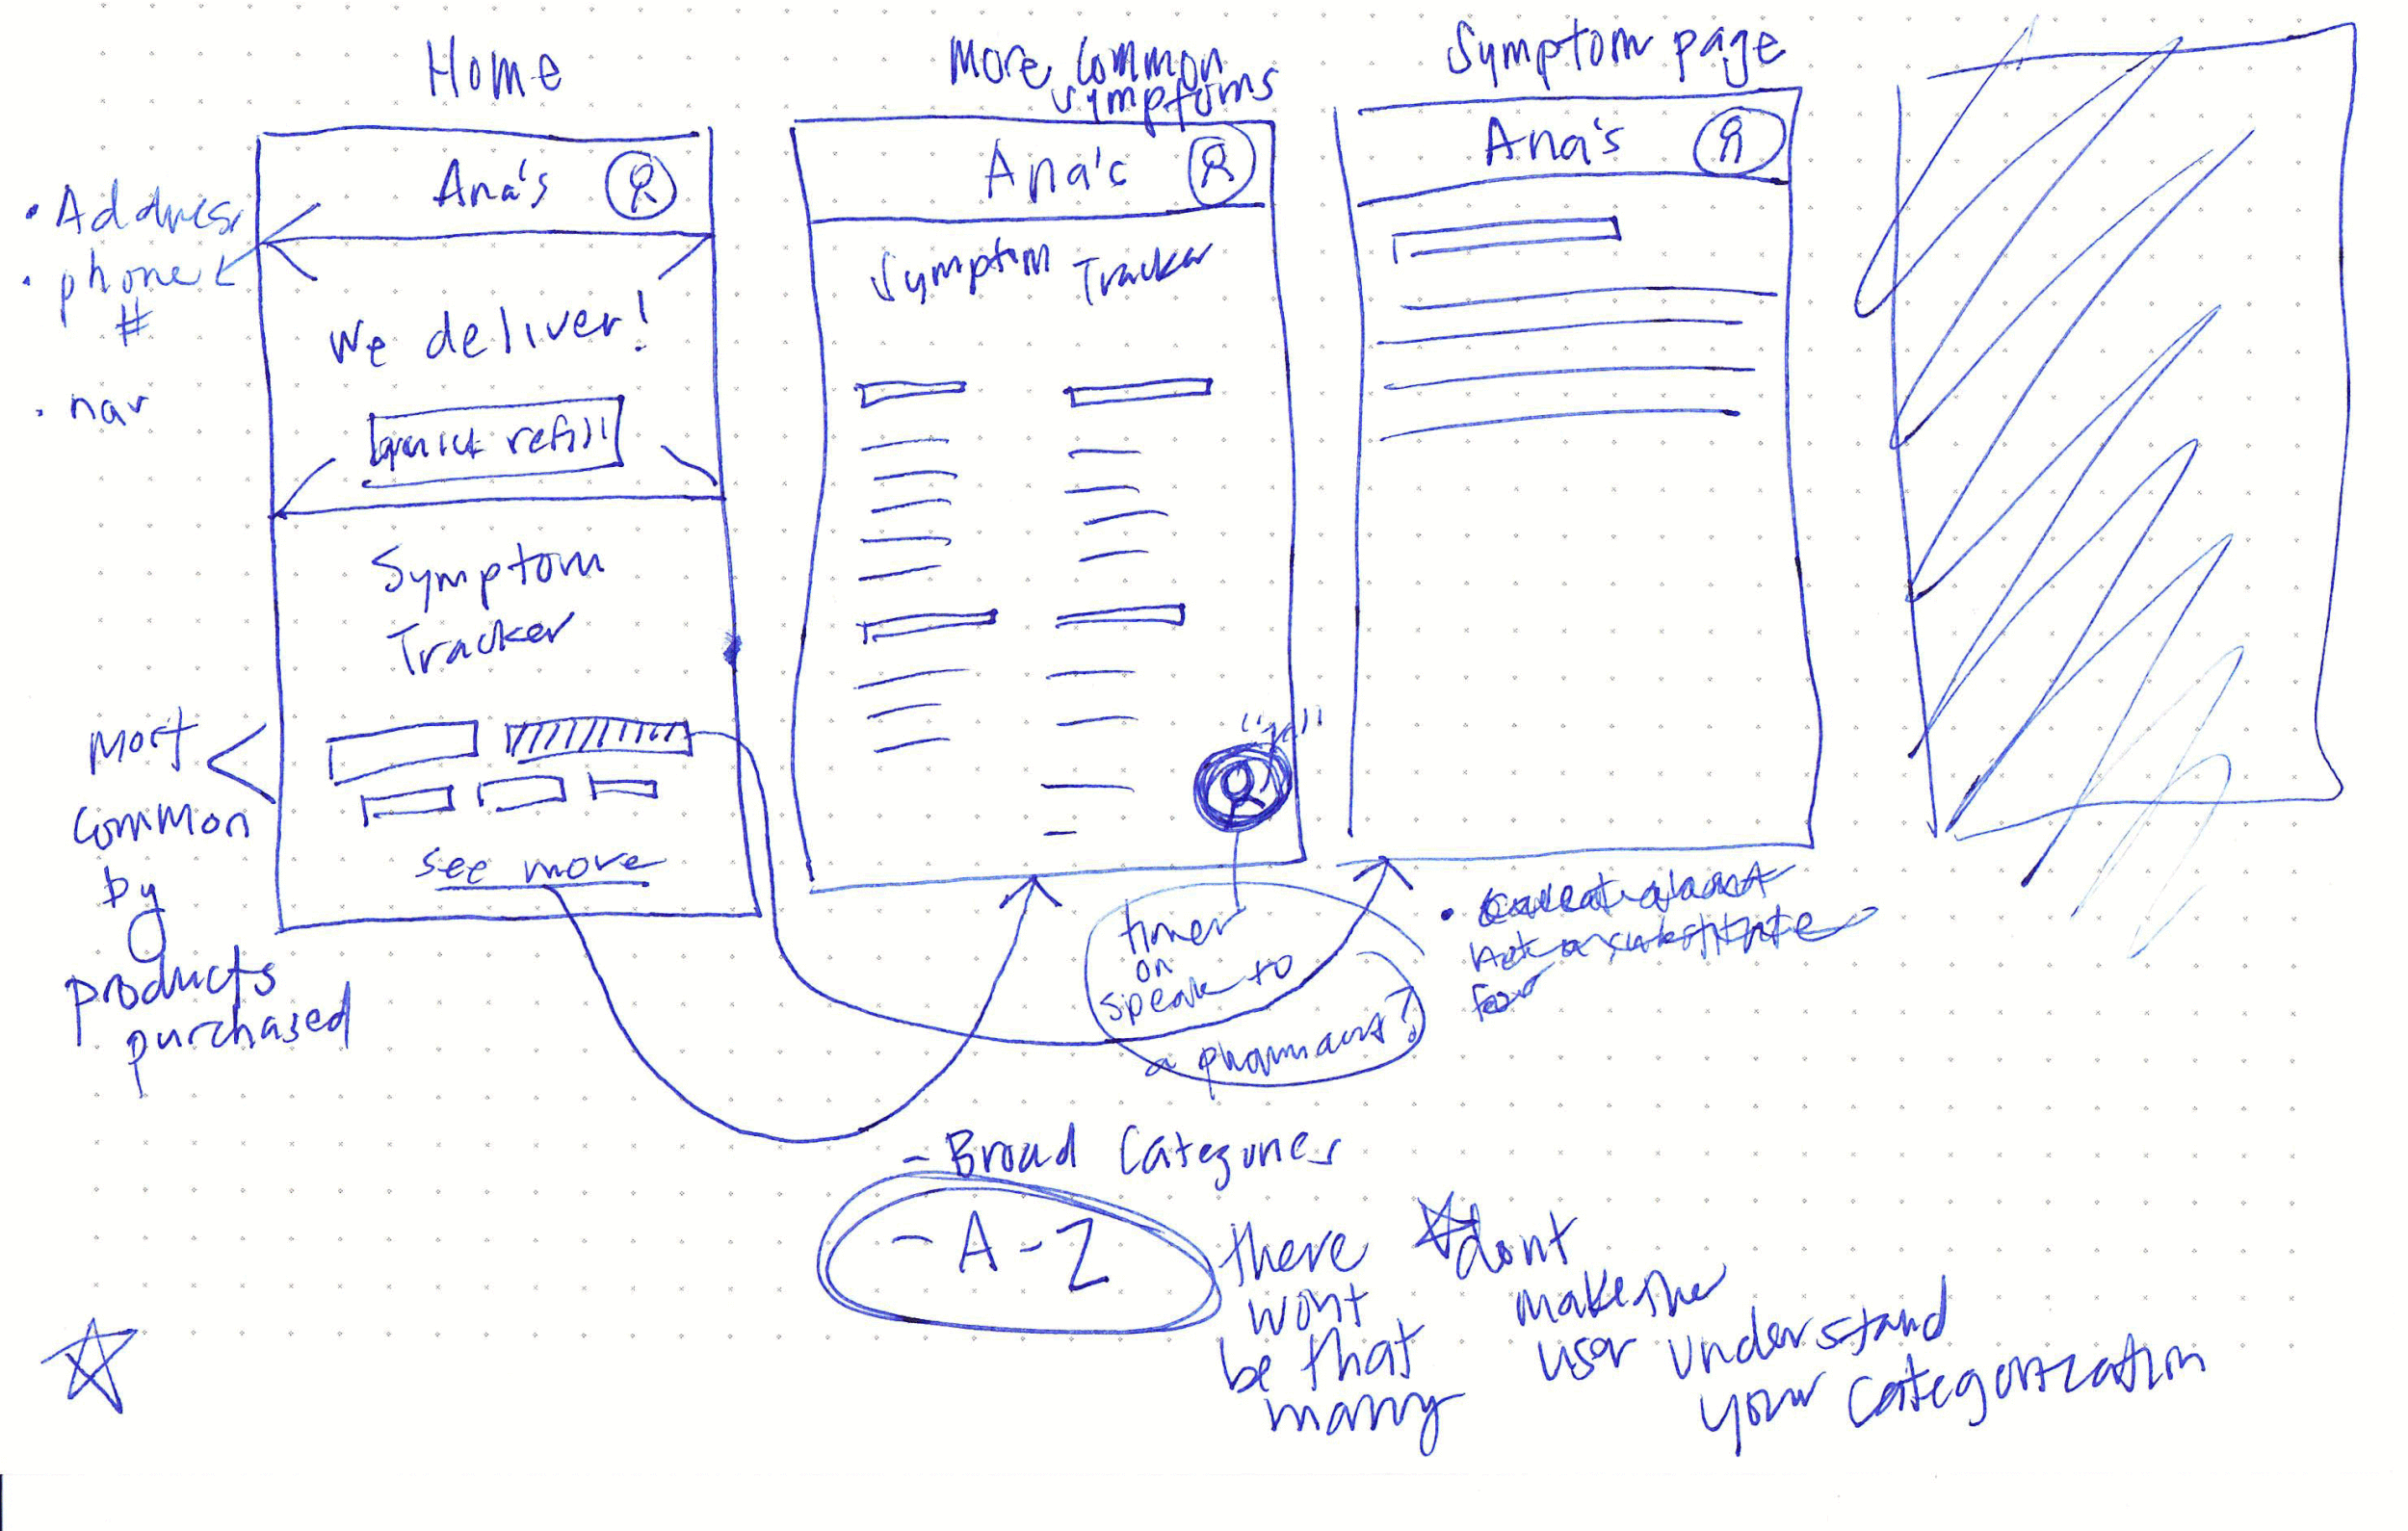 Home
Ana's
• Address
• phone
#
• nav
We deliver!
quick refill
Symptom
Tracker
Most
common
by
products
purchased
see more
More Common
symptoms
Ana's
Symptom Tracker
timer
on
speak to
a pharmacist?
- Broad Categories
- A - Z
there
wont
be that
many
dont
make the
user understand
your categorization
Symptom page
Ana's
•
not a substitute
for